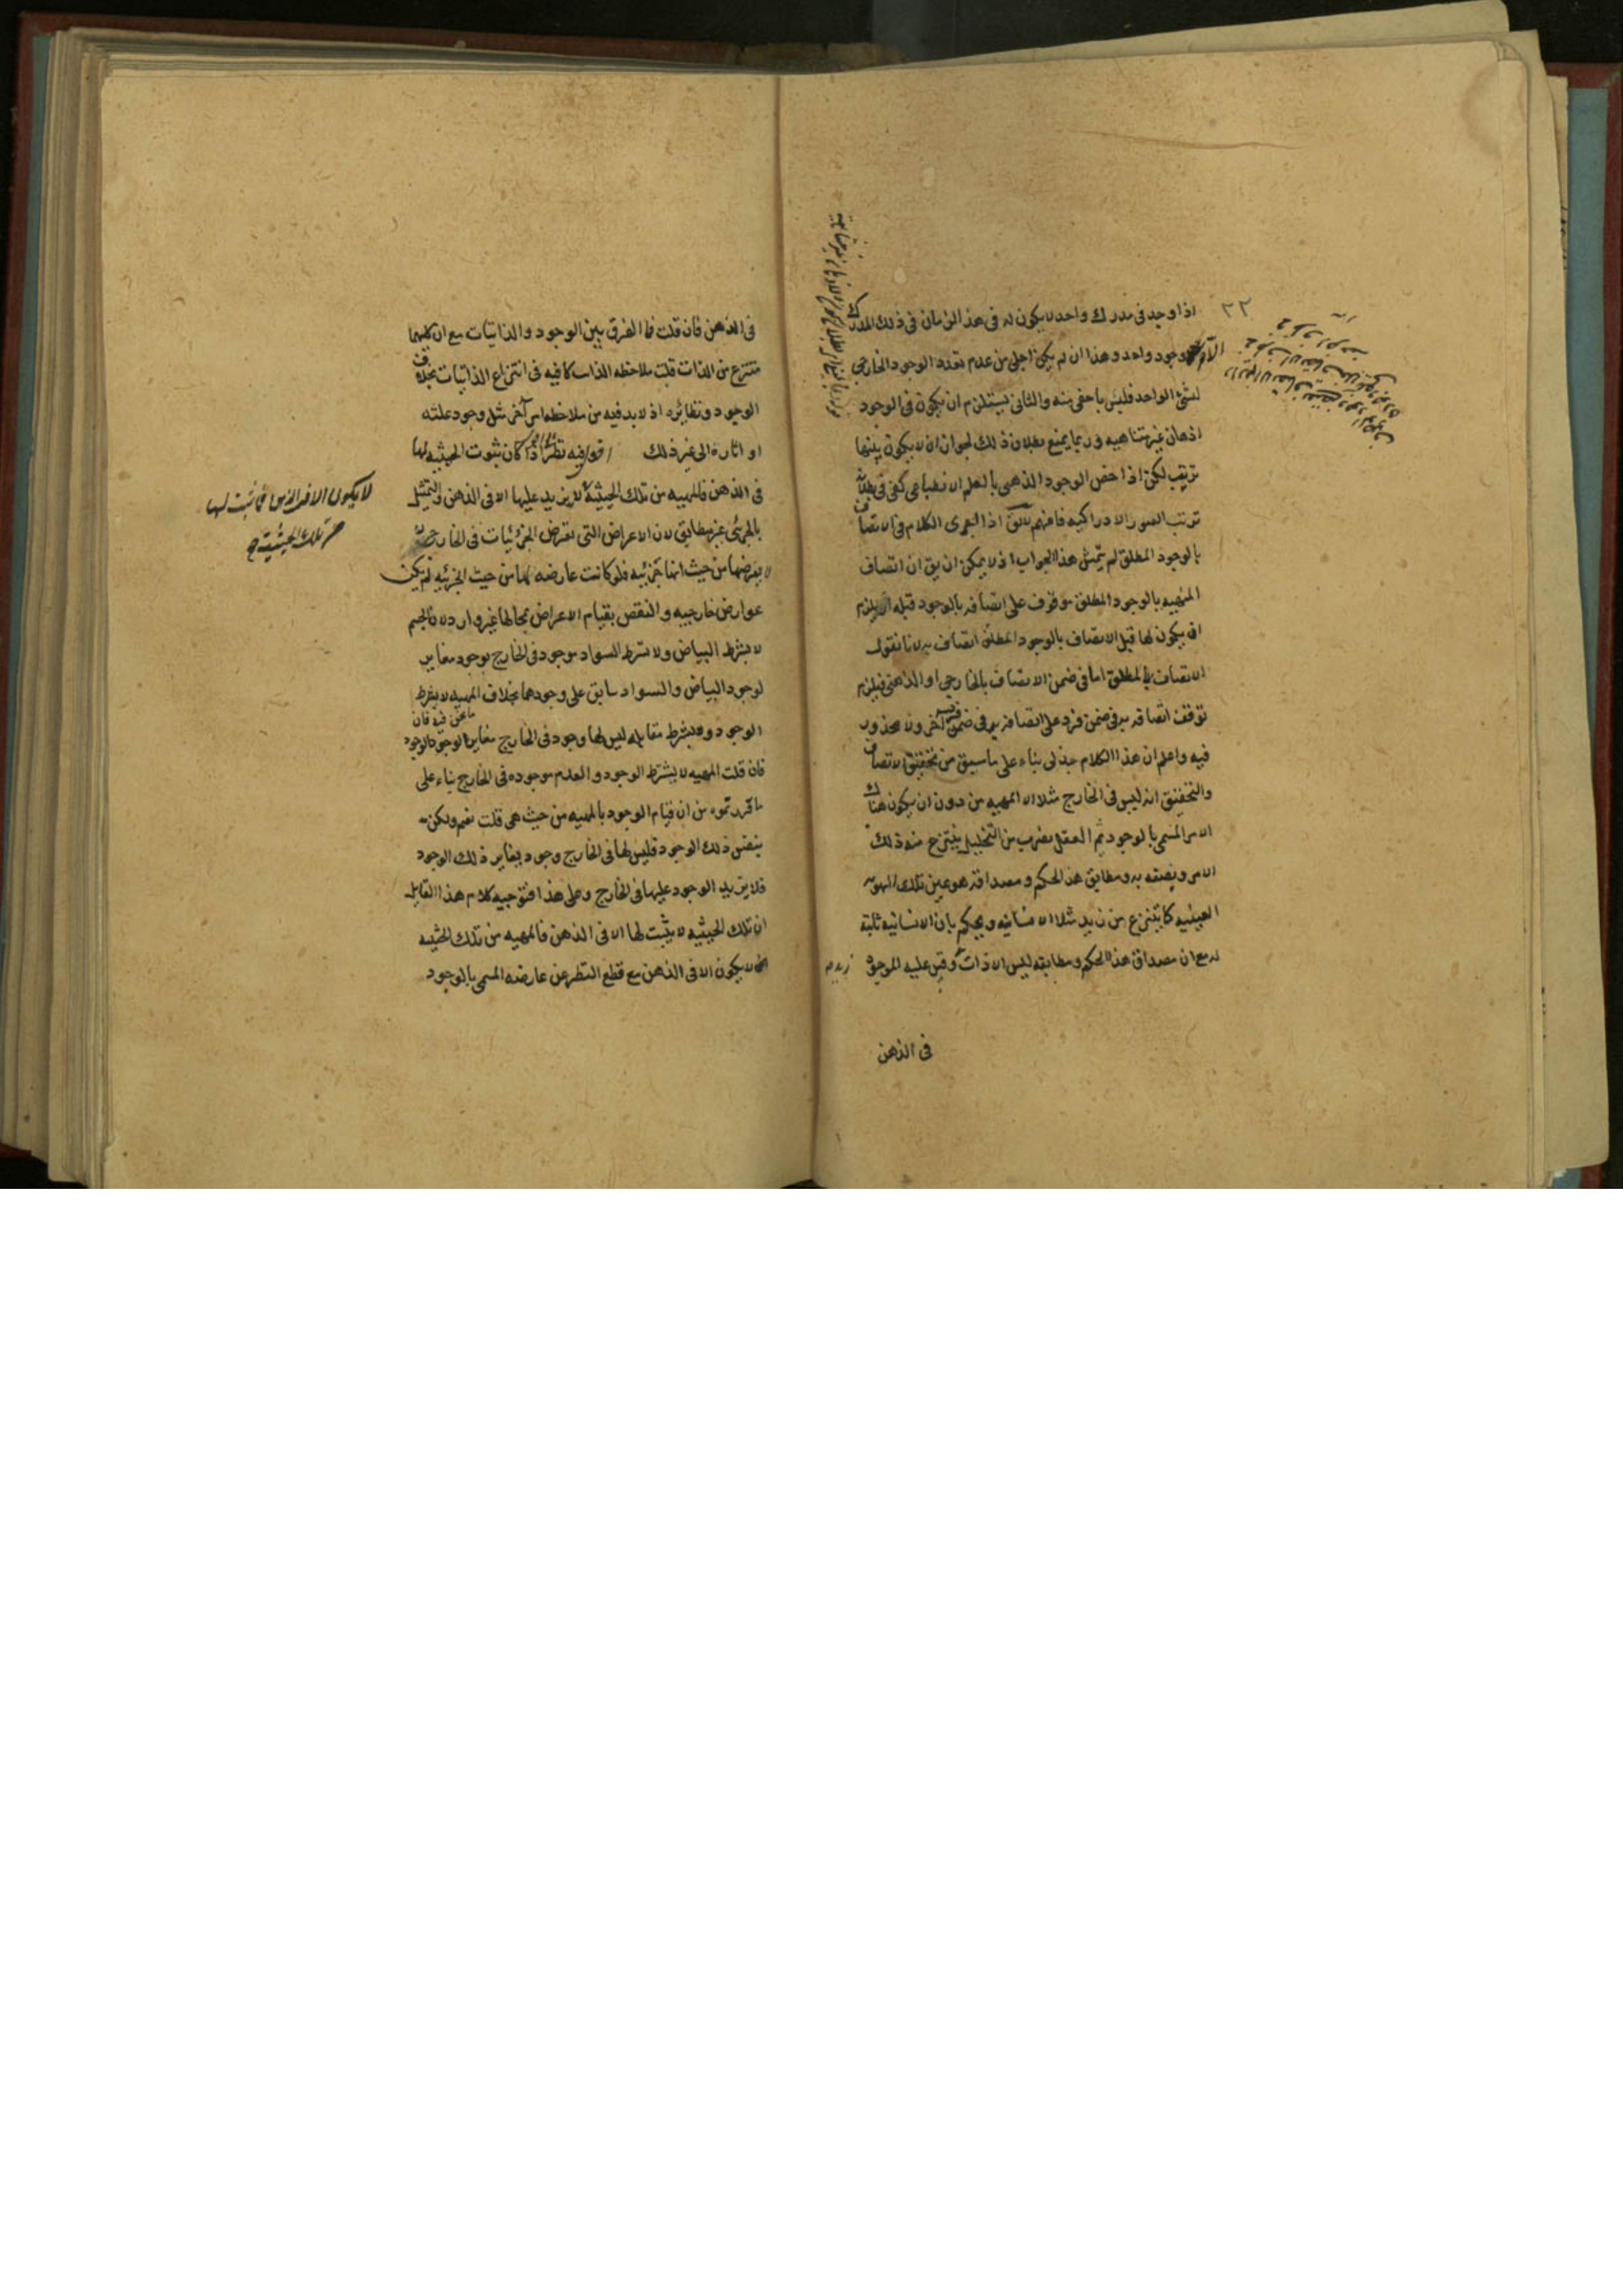 ٢٢
اذا وجد فى مدرك واحد لا يكون له فى هذا الزمان فى ذلك المدرك
وجود واحد وهذا ان لم يكن اجلى من عدم تعدد الوجود الخارجى
لشئ الواحد فليس باخفى منه والثانى يستلزم ان يكون فى الوجود
اذهان غير متناهيه وربما يمنع بطلان ذلك لجواز ان لا يكون بينها
ترتيب لكن اذا خص الوجود الذهنى بالعلم الانطباعى كفى فى
ترتب الصور الادراكيه فافهم اذا اجرى الكلام فى الاتصاف
بالوجود المطلق لم يتمش هذا الجواب اذ لا يمكن ان يق ان اتصاف
المهيه بالوجود المطلق موقوف على اتصافه بالوجود قبله اذ يلزم
ان يكون لها قبل الاتصاف بالوجود المطلق اتصاف به لانا نقول
الاتصاف بالمطلق اما فى ضمن الاتصاف بالخارجى او الذهنى فيلزم
توقف اتصافه به فى ضمن فرد على اتصافه به فى ضمن فرد آخر ولا محذور
فيه واعلم ان هذا الكلام جدلى بناء على ما سبق من تحقيق الاتصاف
والتحقيق انه ليس فى الخارج مثلا الا المهيه من دون ان يكون هناك
الامر المسمى بالوجود ثم العقل بضرب من التحليل ينتزع منه ذلك
الامر ويصفه به ومطابق هذا الحكم ومصداقه هو عين تلك الهويه
العينيه كما ينتزع من زيد مثلا الانسانيه ويحكم بان الانسانيه ثابتة
له مع ان مصداق هذا الحكم ومطابقه ليس الا ذات وقس عليه الموجود
زيد
فى الذهن
فى الذهن فان قلت فما الفرق بين الوجود والذاتيات مع ان كليهما
منتزع من الذات قلت ملاحظه الذات كافيه فى انتزاع الذاتيات بخلاف
الوجود ونظائره اذ لا بد فيه من ملاحظه امر آخر مثل وجود علته
او اثاره الى غير ذلك اقول فيه نظر كان ثبوت الحيثيه لها
فى الذهن فالمهيه من تلك الحيثية لا يزيد عليها الا فى الذهن والتمثيل
بالجزئى غير مطابق لان الاعراض التى تعرض الجزئيات فى الخارج
لا يعرضها من حيث انها جزئيه فلو كانت عارضه لها من حيث الجزئيه لم يكن
عوارض خارجيه والنقض بقيام الاعراض بمحالها غير وارد لان الجسم
لا بشرط البياض ولا بشرط السواد موجود فى الخارج بوجود مغاير
لوجود البياض والسواد سابق على وجودهما بخلاف المهيه لا بشرط
ما نحن فيه فان
الوجود ولا بشرط مقابله ليس لها وجود فى الخارج مغاير لوجود الوجود
فان قلت المهيه لا بشرط الوجود والعدم موجوده فى الخارج بناء على
ما قررتموه من ان قيام الوجود بالمهيه من حيث هى قلت نعم ولكن
بنفس ذلك الوجود فليس لها فى الخارج وجود يغاير ذلك الوجود
فلا يزيد الوجود عليها فى الخارج وعلى هذا فتوجيه كلام هذا القايل
ان تلك الحيثيه لا يثبت لها الا فى الذهن فالمهيه من تلك الحيثيه
لا يكون الا فى الذهن مع قطع النظر عن عارضه المسمى بالوجود
لا يكون الا فى الذهن ثبت لها
تلك الحيثية